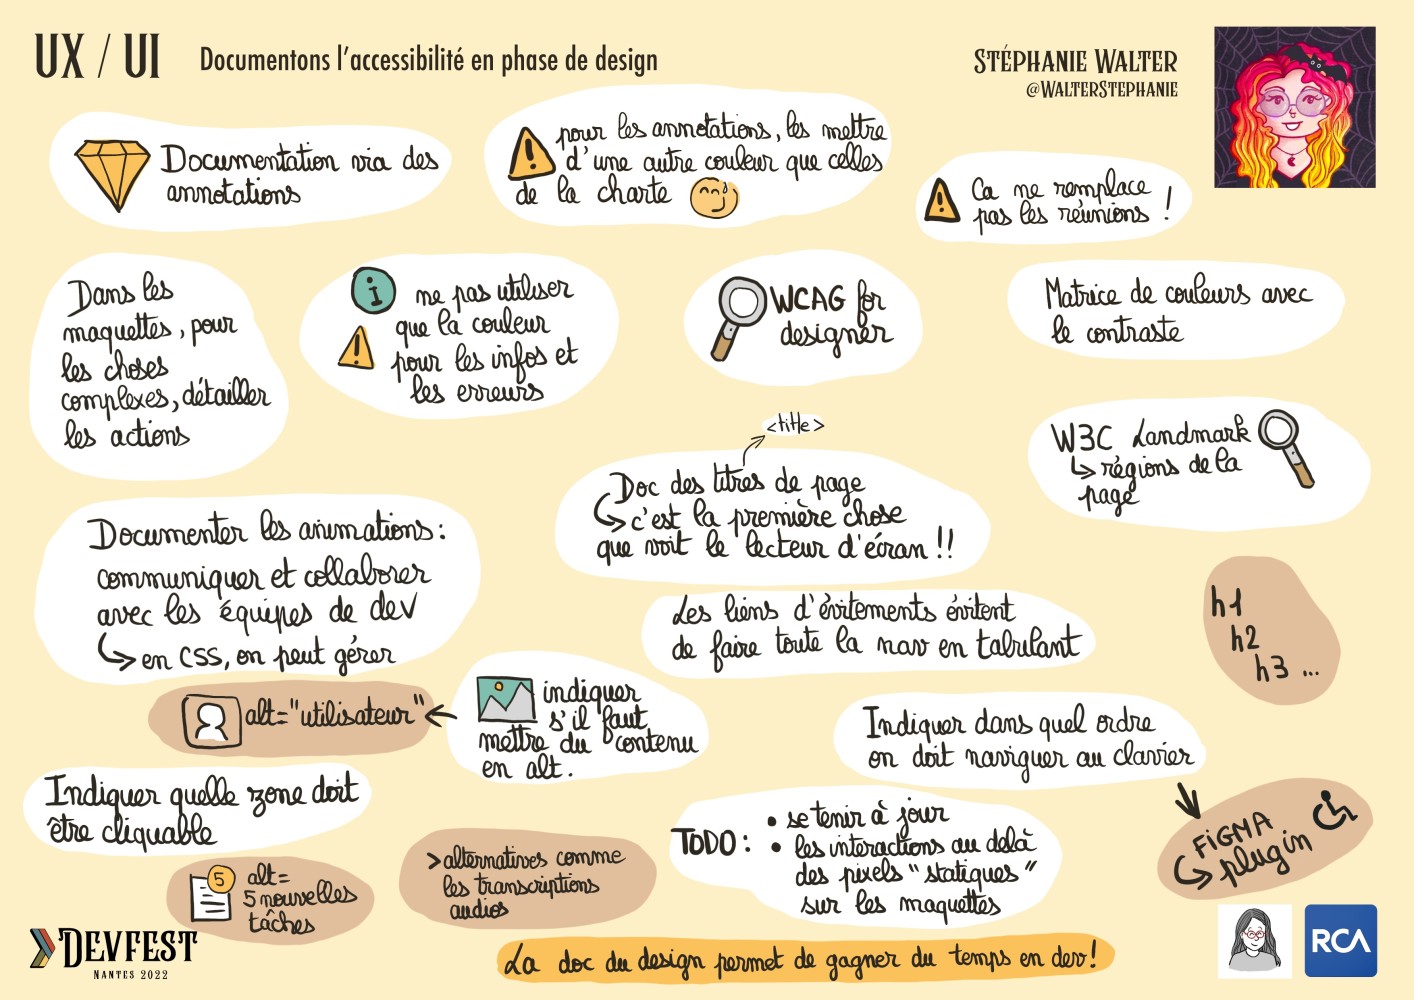 UX / UI
Documentons l'accessibilité en phase de design
STÉPHANIE WALTER
@WALTERSTEPHANIE
Documentation via des
annotations
pour les annotations, les mettre
d'une autre couleur que celles
de la charte
Ca ne remplace
pas les réunions !
Dans les
maquettes, pour
les choses
complexes, détailler
les actions
i
ne pas utiliser
que la couleur
pour les infos et
les erreurs
WCAG for
designer
Matrice de couleurs avec
le contraste
<title>
Doc des titres de page
c'est la première chose
que voit le lecteur d'écran !!
W3C Landmark
régions de la
page
Documenter les animations :
communiquer et collaborer
avec les équipes de dev
en CSS, on peut gérer
Les liens d'évitements évitent
de faire toute la nav en tabulant
h1
h2
h3 ...
alt="utilisateur"
indiquer
s'il faut
mettre du contenu
en alt.
Indiquer dans quel ordre
on doit naviguer au clavier
FIGMA
plugin
Indiquer quelle zone doit
être cliquable
5
alt=
5 nouvelles
tâches
> alternatives comme
les transcriptions
audios
TODO :
• se tenir à jour
• les interactions au delà
des pixels "statiques"
sur les maquettes
La doc du design permet de gagner du temps en dev !
DEVFEST
NANTES 2022
RCA